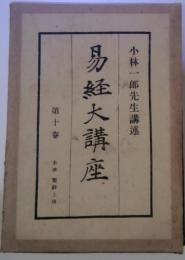 小林一郎先生講述
易経大講座
第十巻